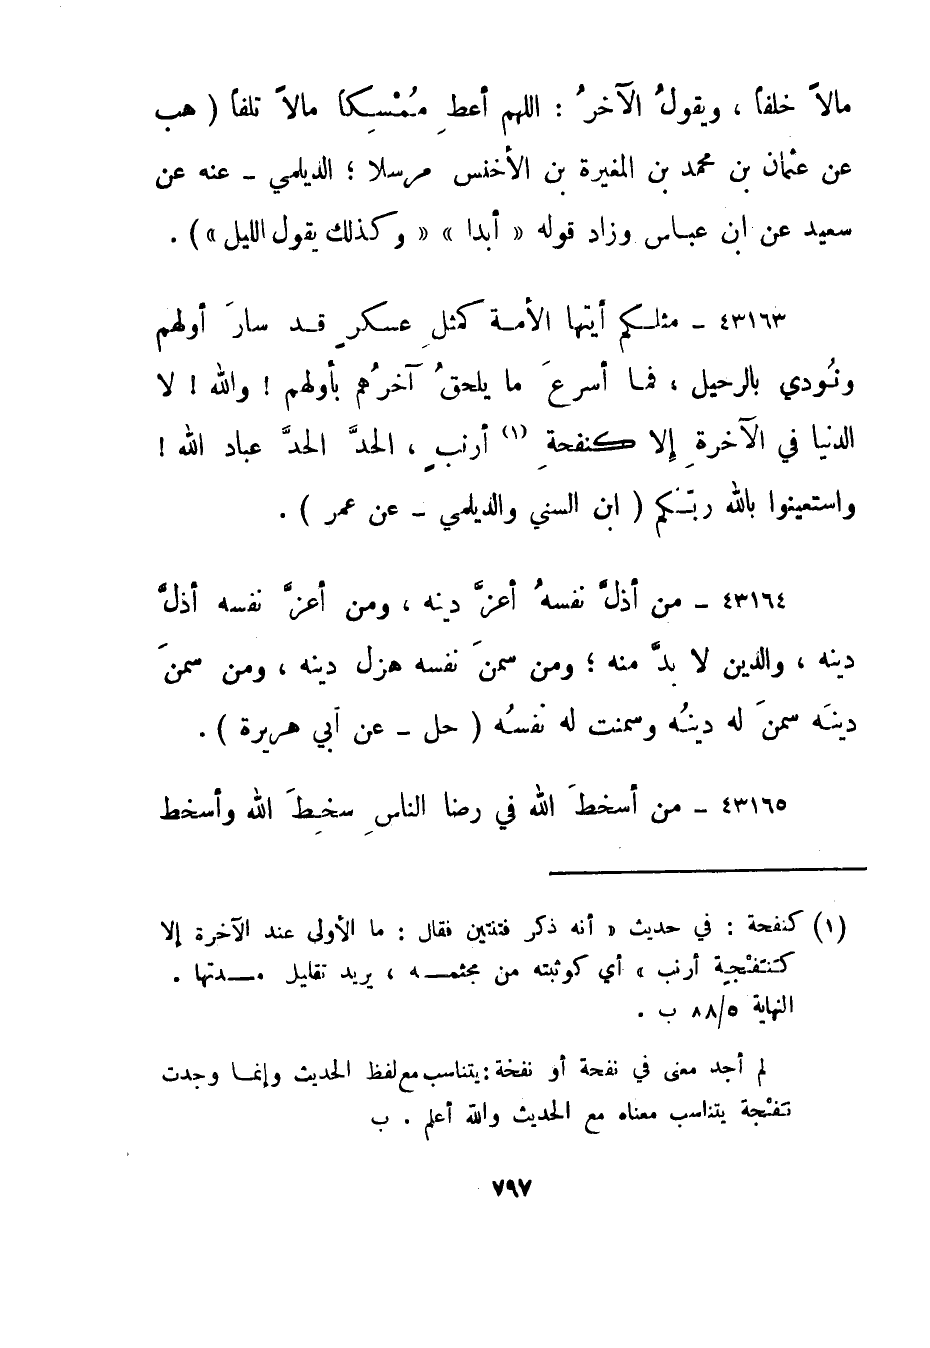 مالاً خلفاً ، ويقولُ الآخرُ : اللهم أعطِ مُمْسِكاً مالاً تلفاً ( هب
عن عثمان بن محمد بن المغيرة بن الأخنس مرسلا ؛ الديلمي - عنه عن
سعيد عن ابن عباس وزاد قوله « أبدا » « وكذلك يقول الليل » ) .
٤٣١٦٣ - مثلكم أيتها الأمة كمثلِ عسكرٍ قد سارَ أولهم
ونُودي بالرحيل ، فما أسرعَ ما يلحقُ آخرُهم بأولهم ! والله ! لا
الدنيا في الآخرةِ إلا كنفحةِ (١) أرنبٍ ، الحدَّ الحدَّ عباد الله !
واستعينوا بالله ربّكم ( ابن السني والديلمي - عن عمر ) .
٤٣١٦٤ - من أذلَّ نفسهُ أعزَّ دينه ، ومن أعزَّ نفسه أذلَّ
دينه ، والدين لا بدَّ منه ؛ ومن سمنَ نفسه هزل دينه ، ومن سمنَ
دينَه سمنَ له دينُه وسمنت له نفسُه ( حل - عن أبي هريرة ) .
٤٣١٦٥ - من أسخطَ الله في رضا الناسِ سخِطَ الله وأسخط
(١) كنفحة : في حديث « أنه ذكر فتنتين فقال : ما الأولى عند الآخرة إلا
كنَفْجِة أرنب » أي كوثبته من مجثمه ، يريد تقليل مدتها .
النهاية ٨٨/٥ ب .
لم أجد معنى في نفحة أو نفخة : يتناسب مع لفظ الحديث وإنما وجدت
نَفْجة يتناسب معناه مع الحديث والله أعلم . ب
٧٩٧